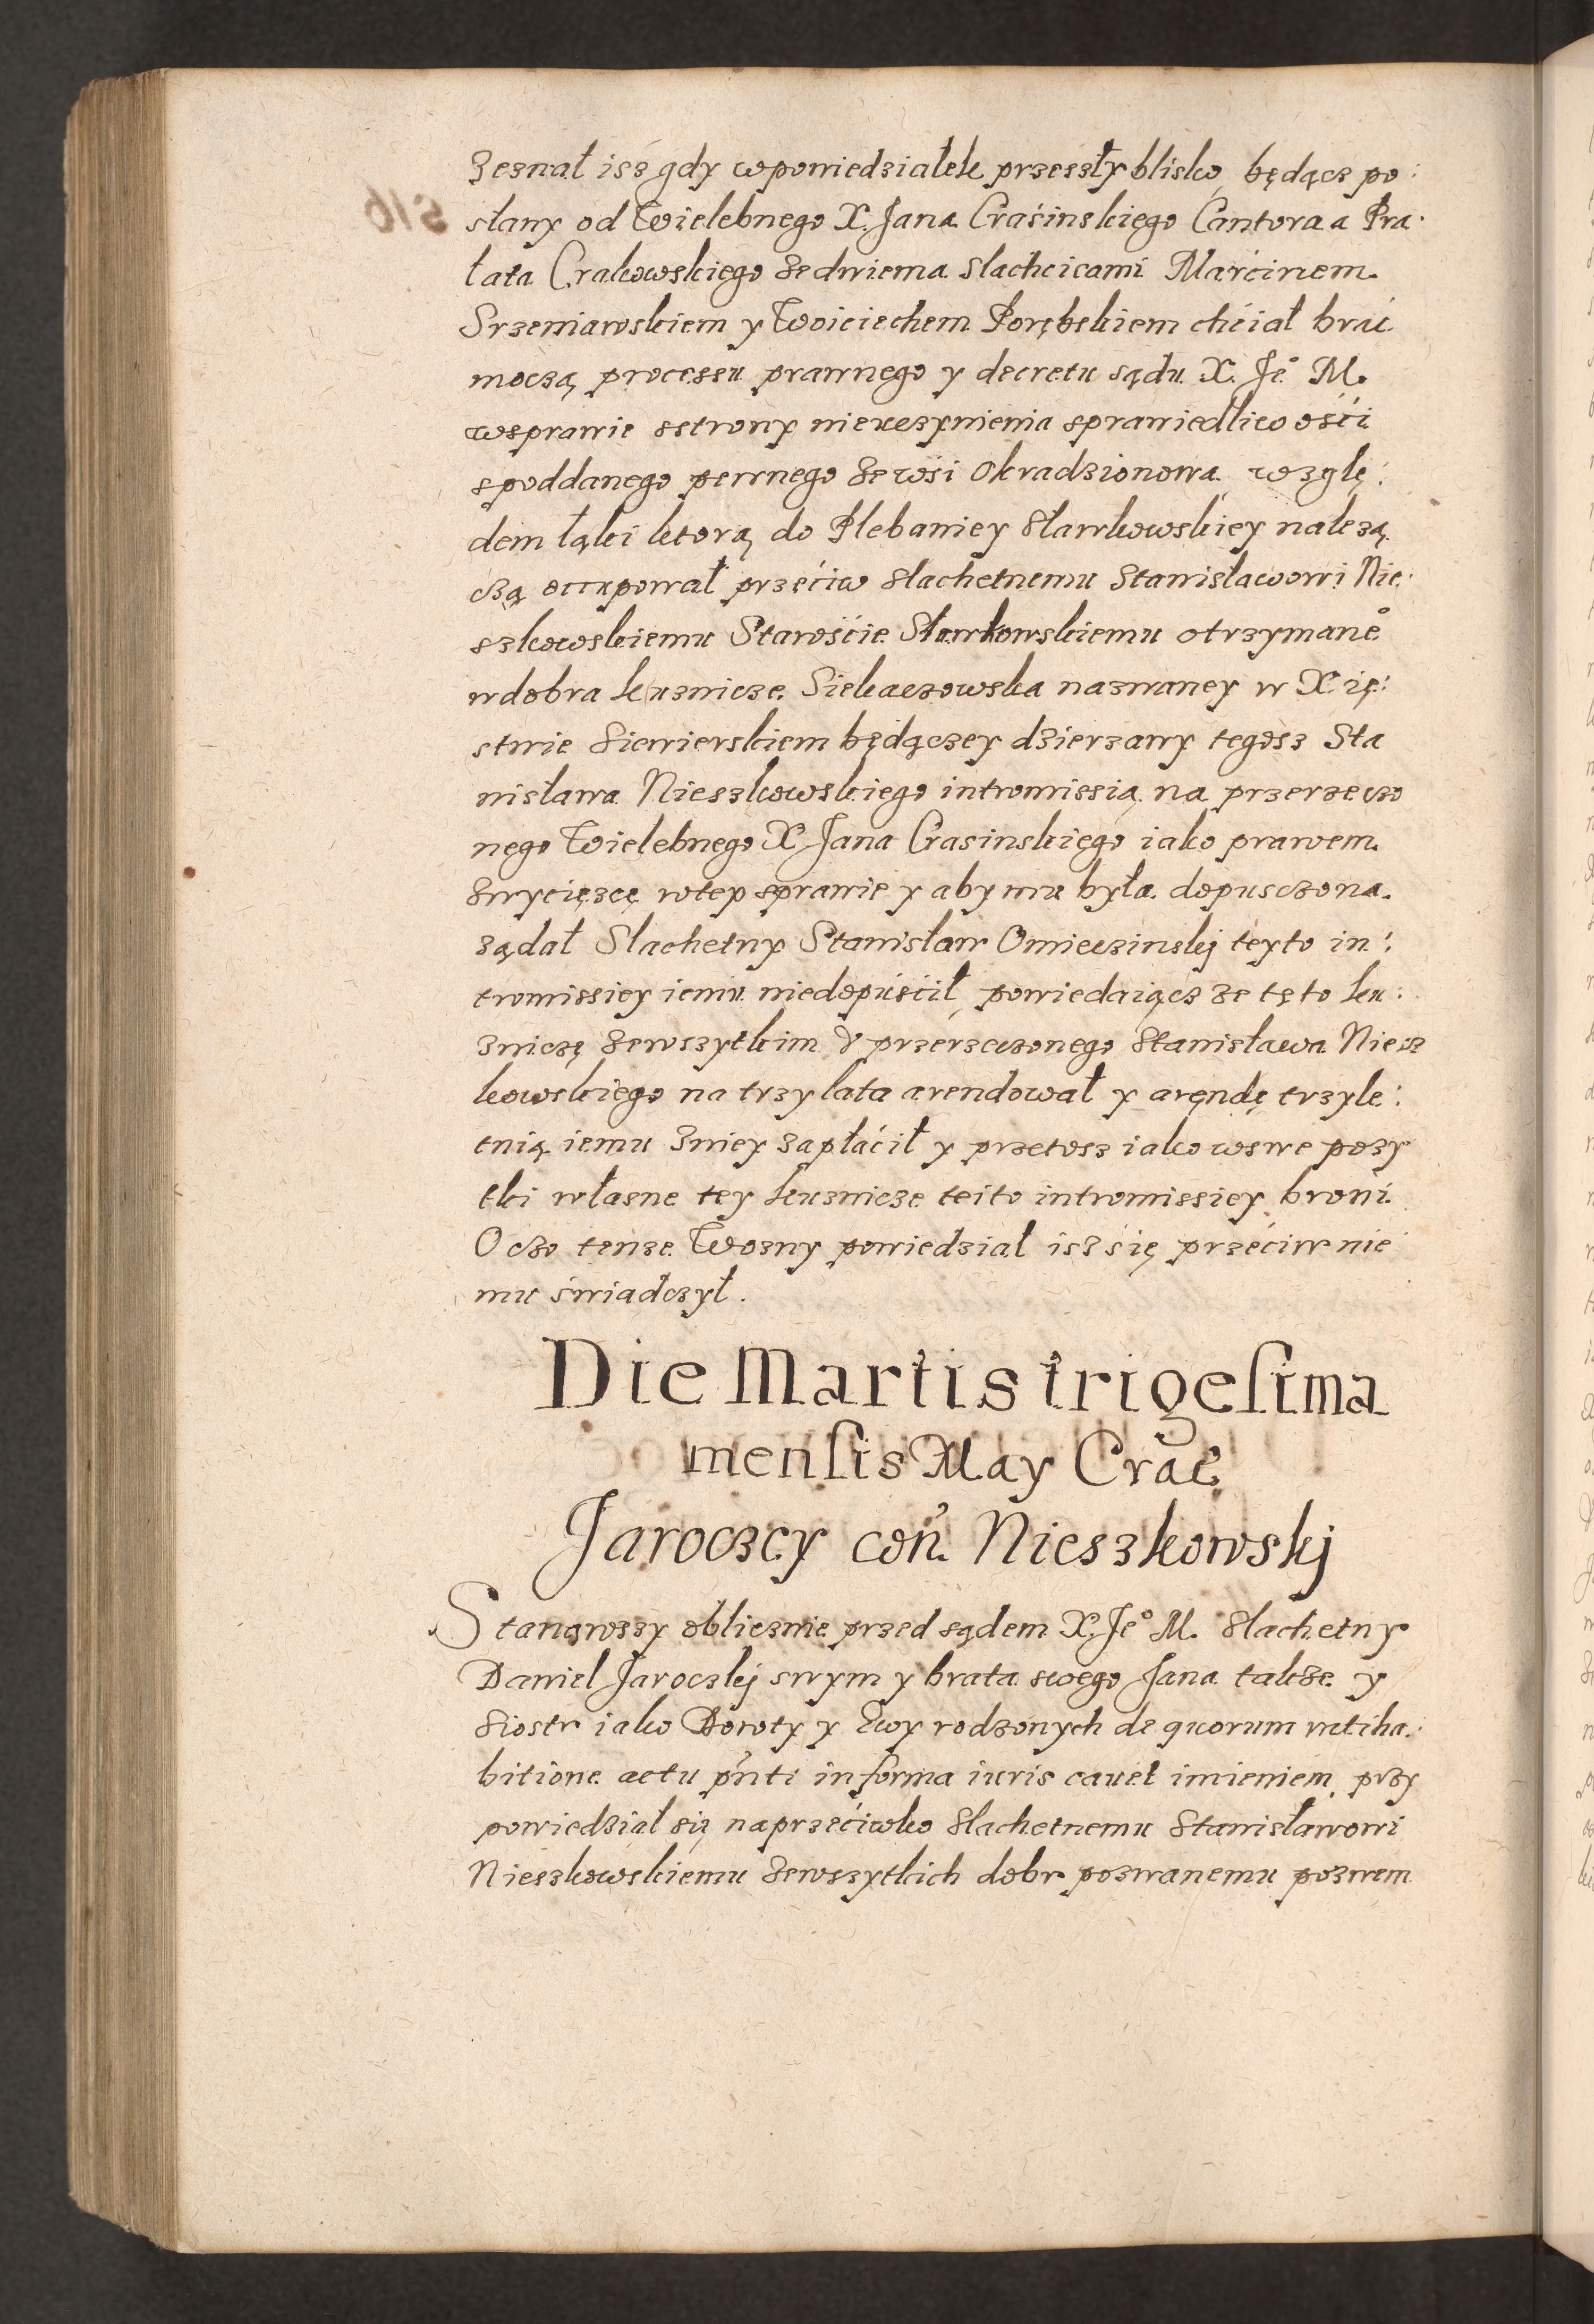 Zeznał isz gdy wponiedziałek przeszły blisko, będącz po:
słany od Wielebnego X. Jana Craśinskiego Cantora a Pra:
łata Crakowskiego ze dwiema Slachcicami Marćinem
Srzeniawskiem y Woiciechem Porębskiem chćiał brać
moczą processu prawnego y decretu sądu X. Je° M.
wsprawie sstrony nieuczynienia sprawiedliwośći
spoddanego pewnego ze wśi Okradzionowa wzglę:
dem łąki ktorą do Plebaniey Sławkowskiey należą
czą occupował przećiw slachetnemu Stanisławowi Nie:
szkowskiemu Starośćie Sławkowskiemu otrzymane°
wdobra kuznicze Siekaczowska nazwaney w X ię:
stwie Siewierskiem będączey dzierzawy tegosz Sta
nisława Nieszkowskiego intromissią na przerzeczo
nego Wielebnego X. Jana Crasinskiego iako prawem
zwycięzcę wtey sprawie y aby mu była dopusczona
ządał Slachetny Stanisław Omieczinskj teyto in:
tromissiey iemu niedopuśćił, powiedaiącz ze tęto ku:
zniczę zewszytkim v przerzeczonego Stanisława Niesz
kowskiego na trzy lata arendował y arendę trzyle:
tnią iemu zniey zapłáćił y przetosz iako wswe pozy
tki własne tey kuznicze teito intromissiey broni
O czo tenze Wozny powiedział isz się przećiw nie
mu świadczył.
Die Martis trigesima
mensis May Crac̃
Jaroczcy con̄ Nieszkowskj
Stanąwszy obliczmie przed sądem X. Je° M. slachetny
Daniel Jaroczkj swym y brata swego Jana takze y
Siostr iako Doroty y Ewy rodzonych de quorum ratiha:
bitione actu pn̄ti in forma iuris cauet imieniem przy
powiedział się naprzećiwko slachetnemu Stanisławowi
Nieszkowskiemu zewszytkich dobr pozwanemu pozwem